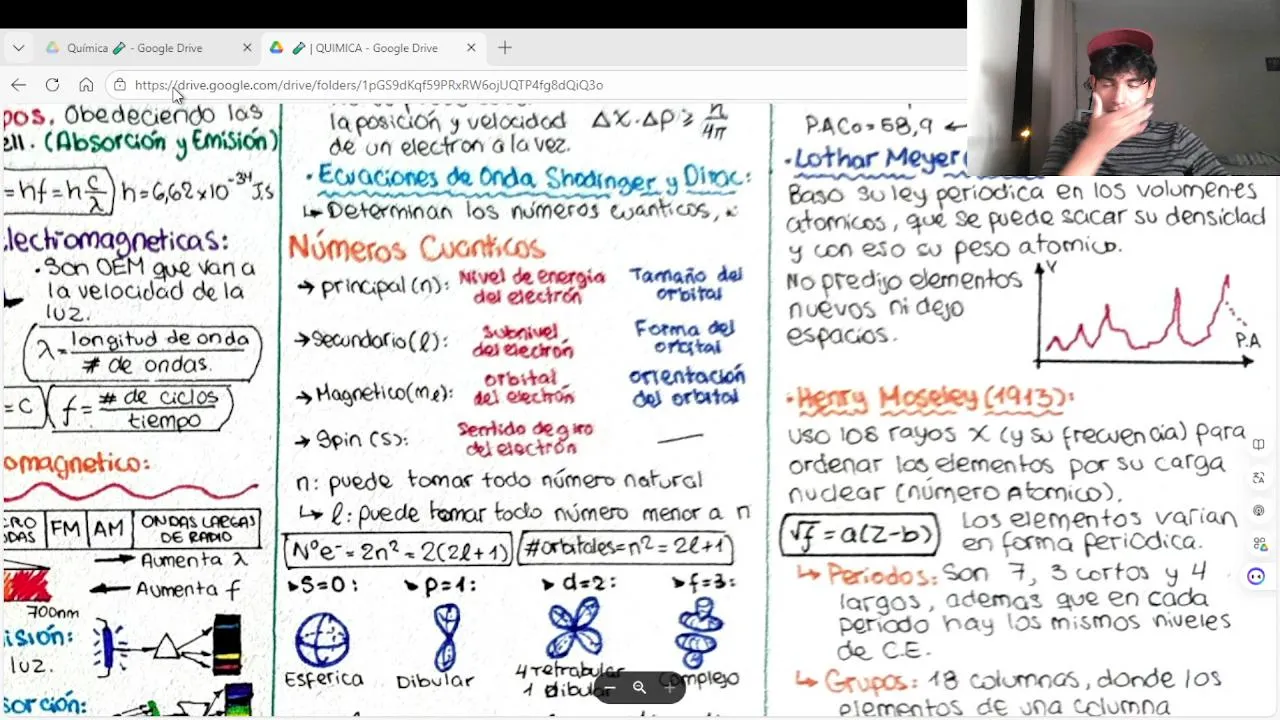 Química 🧪 - Google Drive
🧪 | QUIMICA - Google Drive
https://drive.google.com/drive/folders/1pGS9dKqf59PRxRW6ojUQTP4fg8dQiQ3o
pos, Obedeciendo las
ell. (Absorción y Emisión)
=hf=h c/λ h=6,62x10^-34 J.s
lectromagneticas:
• Son OEM que van a
la velocidad de la
luz.
λ= longitud de onda / # de ondas.
=C f= # de ciclos / tiempo
omagnetico:
FM AM ONDAS LARGAS DE RADIO
→ Aumenta λ
← Aumenta f
700nm
isión:
luz.
sorción:
la posición y velocidad
de un electron a la vez.
Δx.Δp ≥ h/4π
• Ecuaciones de Onda Shodinger y Dirac:
↳ Determinan los números cuanticos,
Números Cuanticos
→ principal(n): Nivel de energía del electrón Tamaño del orbital
→ Secundario(ℓ): Subnivel del electrón Forma del orbital
→ Magnetico(mℓ): orbital del electrón orientación del orbital
→ Spin (s): Sentido de giro del electrón —
n: puede tomar todo número natural
↳ ℓ: puede tomar todo número menor a n
N°e⁻=2n²=2(2ℓ+1) #orbitales=n²=2ℓ+1
▸S=0: ▸p=1: ▸d=2: ▸f=3:
Esferica Dibular 4 tetrabular Complejo
1 dibular
P.A Co=58,9 ←
• Lothar Meyer
Baso su ley periodica en los volumenes
atomicos, que se puede sacar su densidad
y con eso su peso atomico.
No predijo elementos
nuevos ni dejo
espacios.
V
P.A
• Henry Moseley (1913):
Uso 108 rayos X (y su frecuencia) para
ordenar los elementos por su carga
nuclear (número Atomico).
√f = a(Z-b) Los elementos varian
en forma periodica.
↳ Periodos: Son 7, 3 cortos y 4
largos, ademas que en cada
periodo hay los mismos niveles
de C.E.
↳ Grupos: 18 columnas, donde los
elementos de una columna